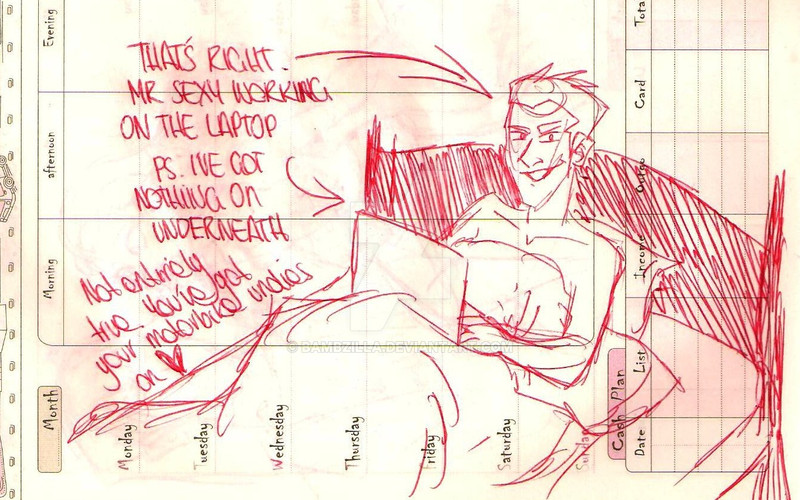 THAT'S RIGHT.
MR SEXY WORKING
ON THE LAPTOP
PS. I'VE GOT
NOTHING ON
UNDERNEATH
Not entirely
true. You've got
your motorbike undies
on
Evening
afternoon
Morning
Month
Monday
Tuesday
Wednesday
Thursday
Friday
Saturday
Sunday
Cash Plan
Date
List
Income
Outgo
Card
Total
© BAMBZILLA.DEVIANTART.COM